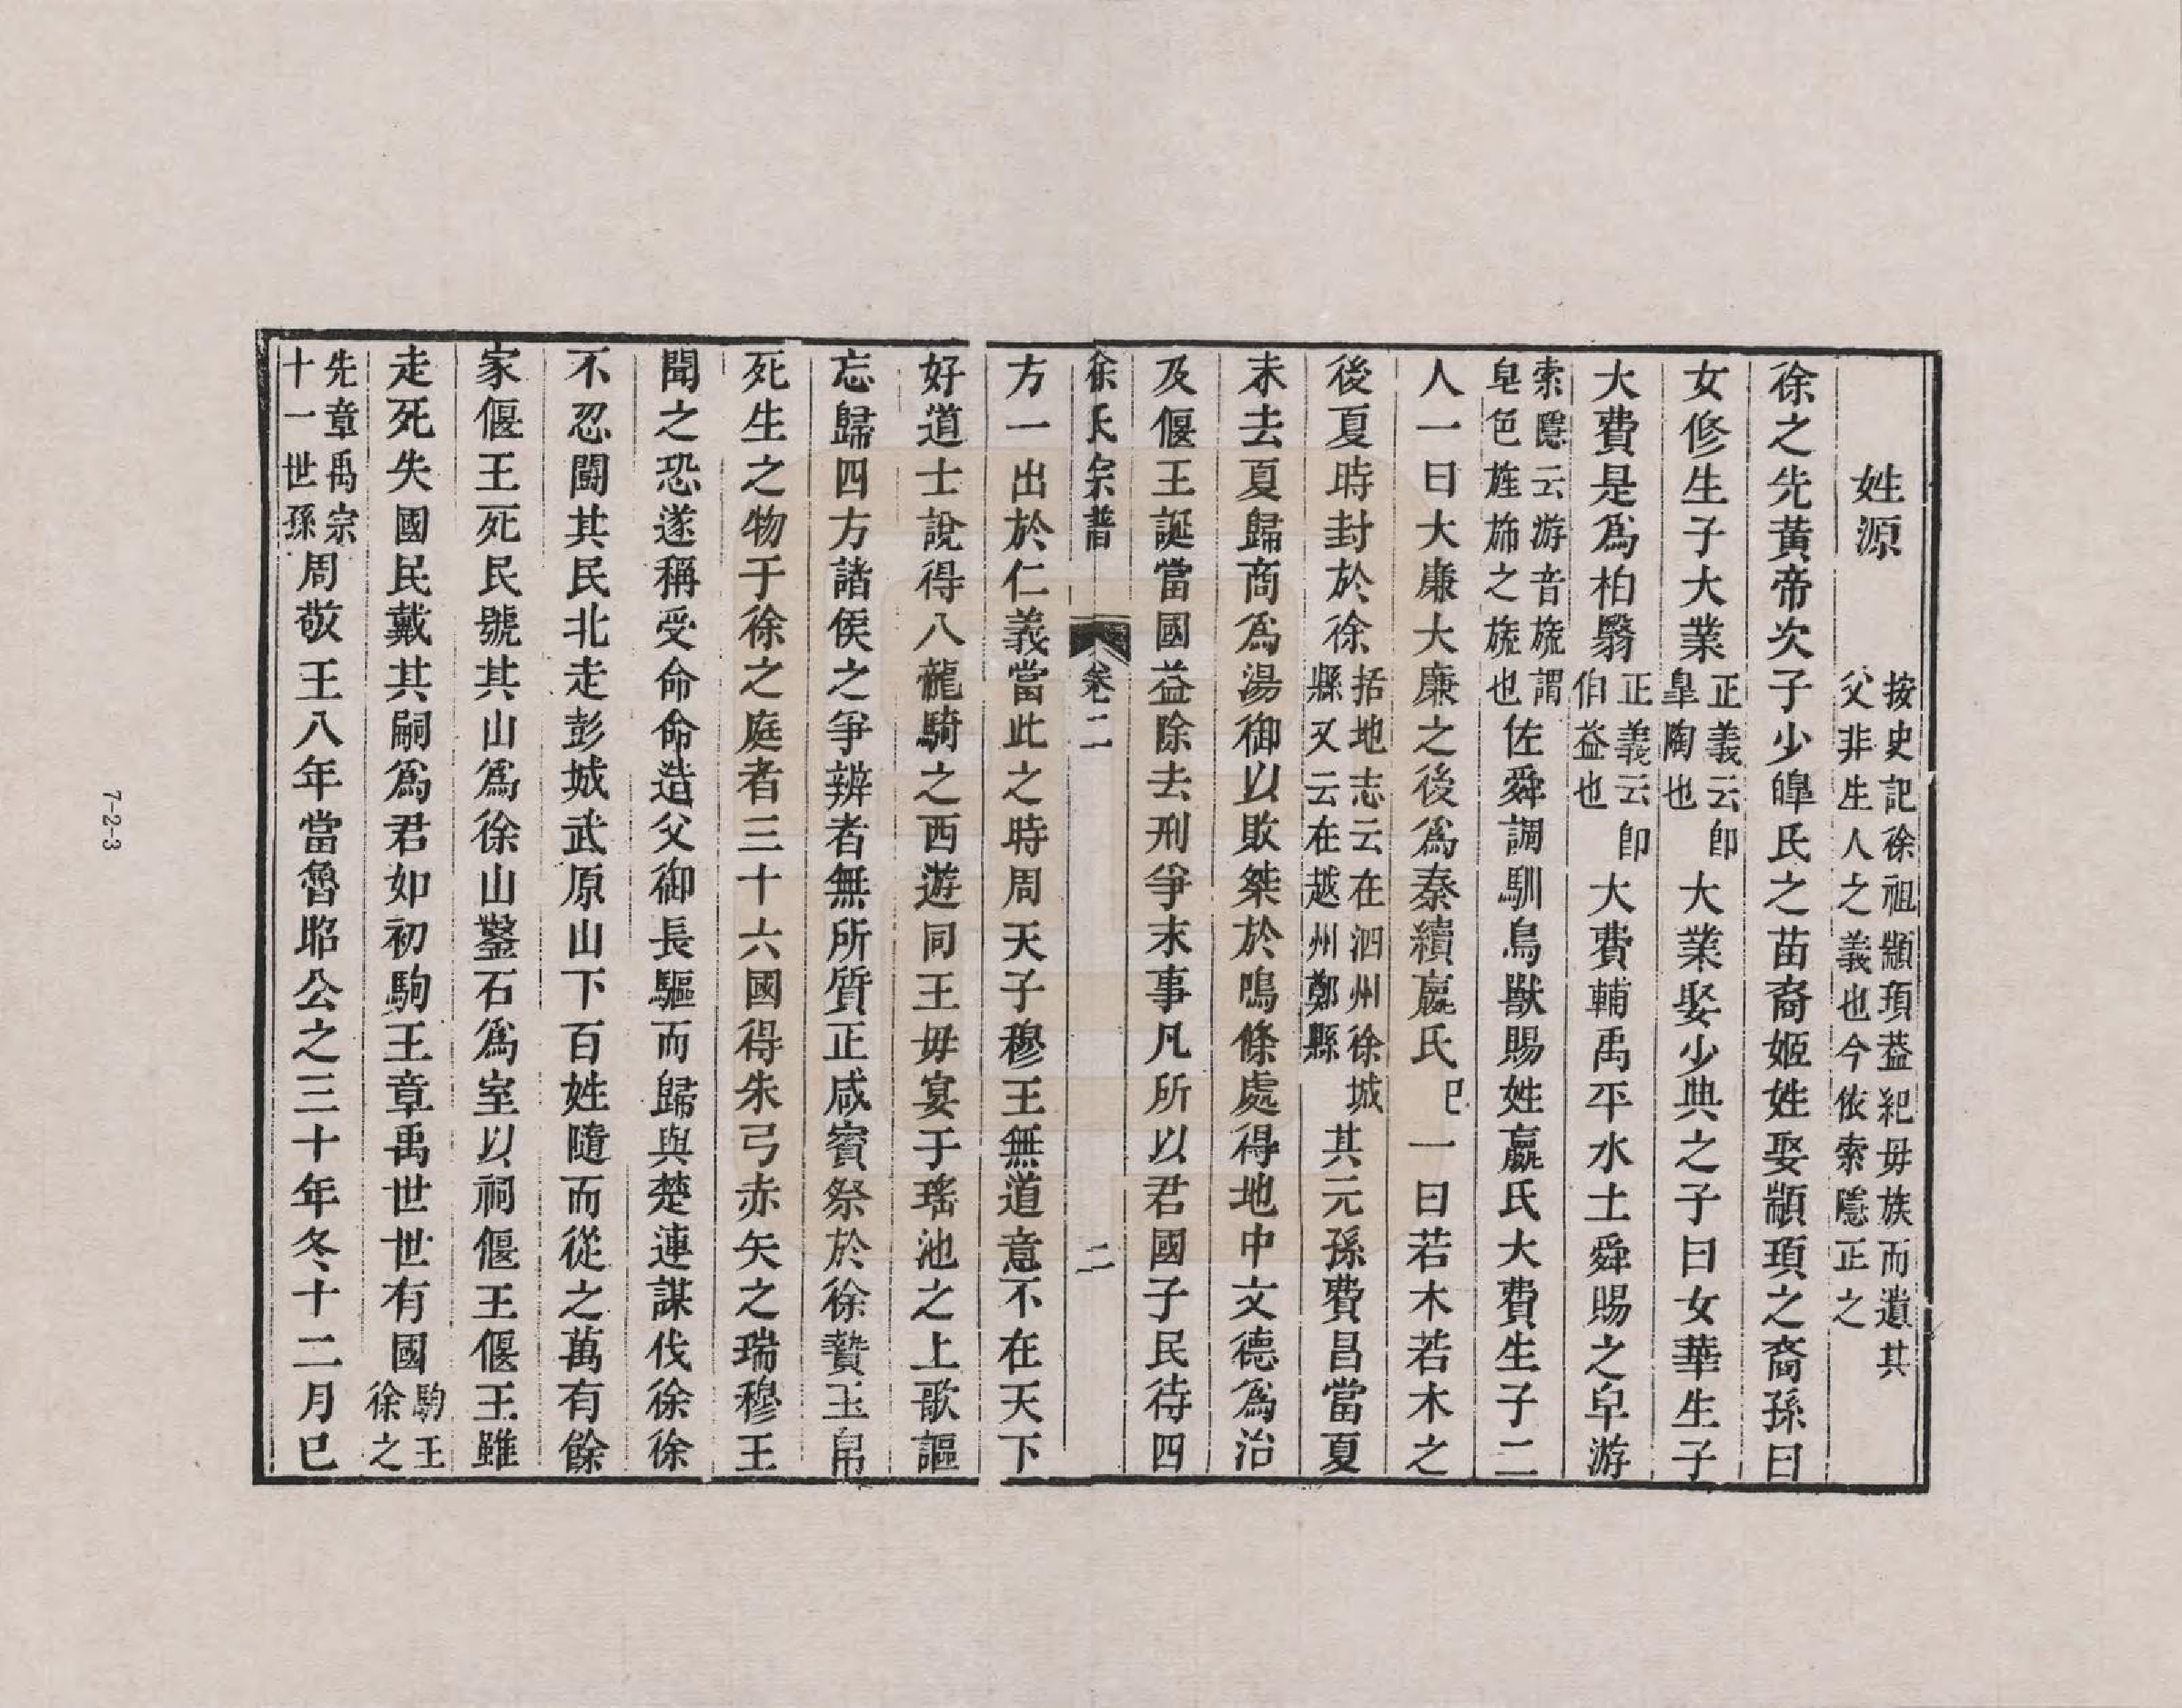 姓源 按史記徐祖顓頊葢紀母族而遺其父非生人之義也今依索隱正之
徐之先黃帝次子少皥氏之苗裔姬姓娶顓頊之裔孫曰
女修生子大業正義云卽皐陶也大業娶少典之子曰女華生子
大費是爲柏翳正義云卽伯益也大費輔禹平水土舜賜之皁游
索隱云游音旒謂皂色旌旆之旒也佐舜調馴鳥獸賜姓嬴氏大費生子二
人一曰大廉大廉之後爲秦續嬴氏祀一曰若木若木之
後夏時封於徐括地志云在泗州徐城縣又云在越州鄮縣其元孫費昌當夏
末去夏歸商爲湯御以敗桀於鳴條處得地中文德爲治
及偃王誕當國益除去刑爭末事凡所以君國子民待四
徐氏宗譜 卷二 二
方一出於仁義當此之時周天子穆王無道意不在天下
好道士說得八龍騎之西遊同王母宴于瑤池之上歌謳
忘歸四方諸侯之爭辨者無所質正咸賓祭於徐贄玉帛
死生之物于徐之庭者三十六國得朱弓赤矢之瑞穆王
聞之恐遂稱受命命造父御長驅而歸與楚連謀伐徐徐
不忍鬭其民北走彭城武原山下百姓隨而從之萬有餘
家偃王死民號其山爲徐山鑿石爲室以祠偃王偃王雖
走死失國民戴其嗣爲君如初駒王章禹世世有國駒王徐之
先章禹宗十一世孫周敬王八年當魯昭公之三十年冬十二月已
7-2-3